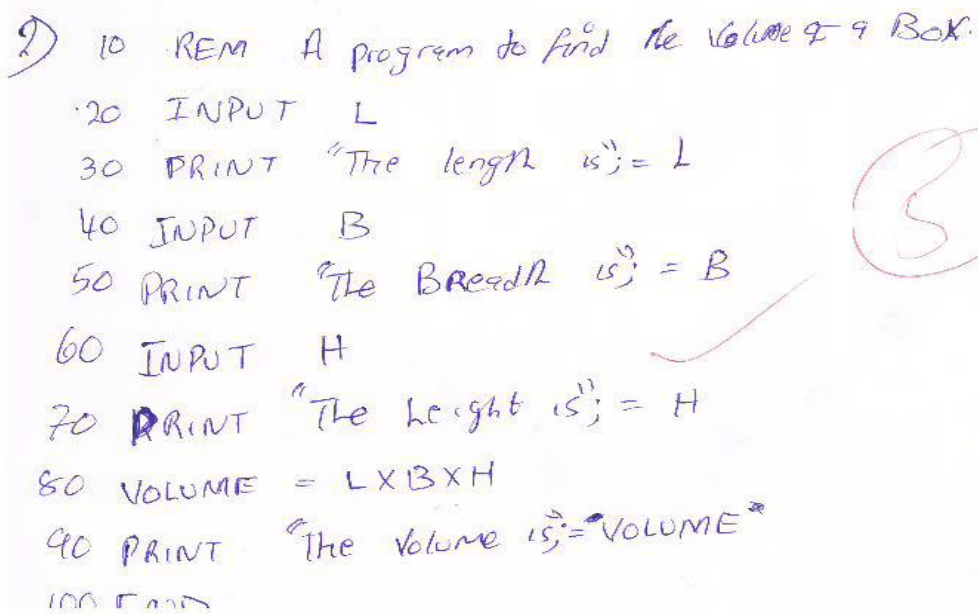 2) 10 REM A program to find the Volume of a Box.
20 INPUT L
30 PRINT "The length is"; = L
40 INPUT B
50 PRINT "The BReadth is"; = B
60 INPUT H
70 PRINT "The height is"; = H
80 VOLUME = L X B X H
90 PRINT "The Volume is;="VOLUME"
100 END